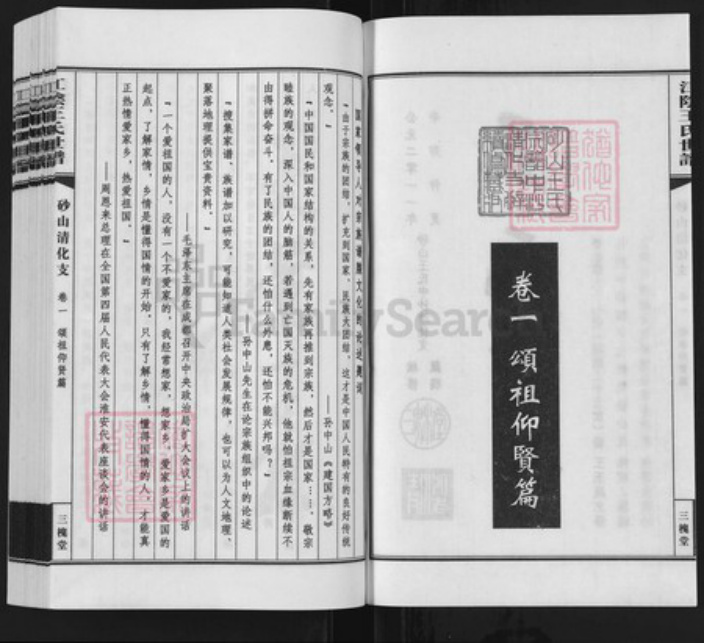 江陰王氏世譜
三槐堂
卷一 頌祖仰賢篇
砂山王氏
FamilySearch
国家领导人对宗族谱牒文化的论述题误
“由于宗族的团结，扩充到国家、民族大团结，这才是中国人民特有的良好传统
观念。”
——孙中山《建国方略》
“中国国民和国家结构的关系，先有家族再推到宗族，然后才是国家……。敬宗
睦族的观念，深入中国人的脑筋，若遇到亡国灭族的危机，他就怕祖宗血缘断续不
由得拼命奋斗，有了民族的团结，还怕什么外患，还怕不能兴邦吗？”
孙中山先生在论宗族组织中的论述
“搜集家谱、族谱加以研究，可能知道人类社会发展规律，也可以为人文地理、
聚落地理提供宝贵资料。”
——毛泽东主席在成都召开中央政治局扩大会议上的讲话
“一个爱祖国的人，没有一个不爱家的，我经常想家，想家乡，爱家乡是爱国的
起点，了解家情、乡情是懂得国情的开始，只有了解乡情，懂得国情的人，才能真
正热情爱家乡，热爱祖国。”
——周恩来总理在全国第四届人民代表大会淮安代表座谈会的讲话
江陰王氏世譜
砂山清化支
卷一
頌祖仰賢篇
三槐堂